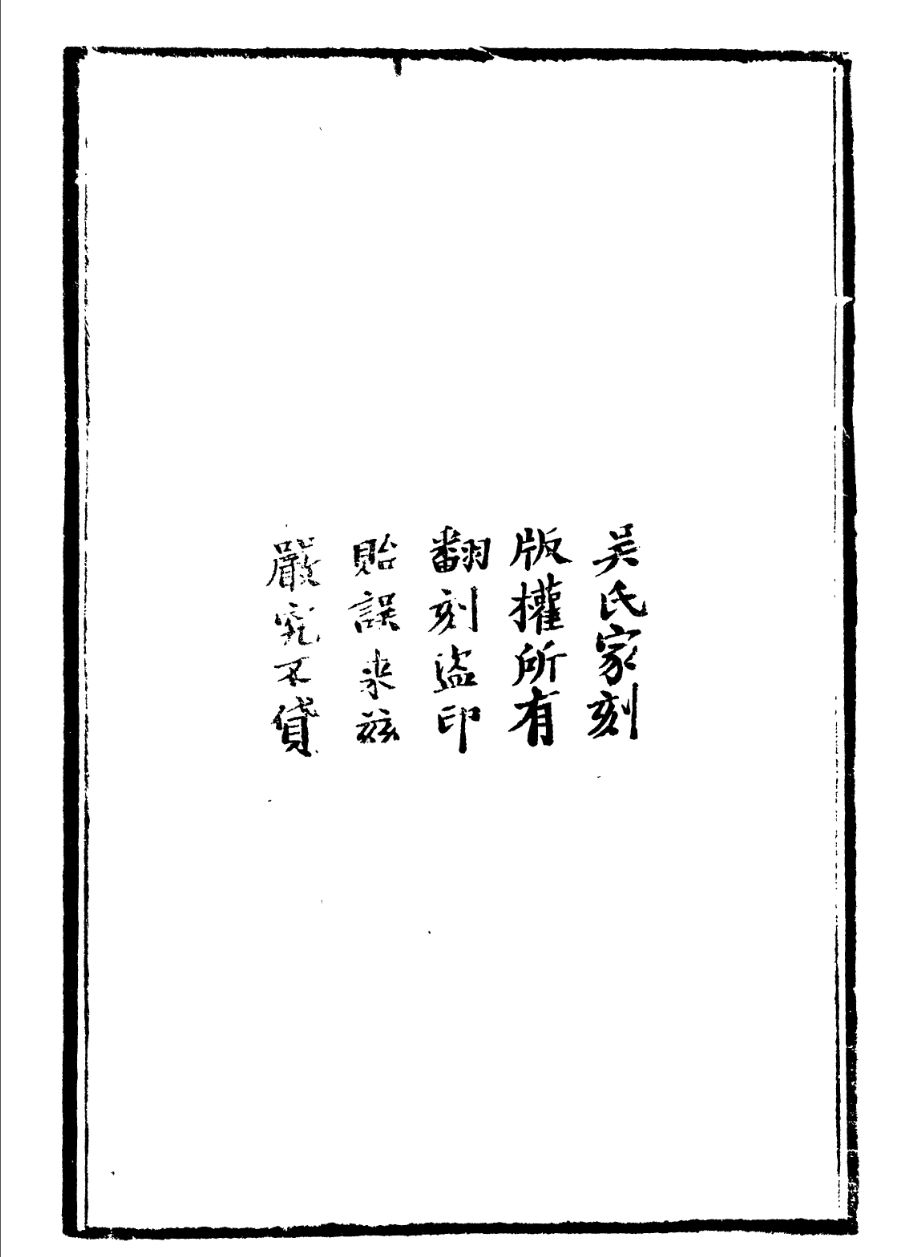 吴氏家刻
版權所有
翻刻盜印
貽誤来兹
嚴究不貸